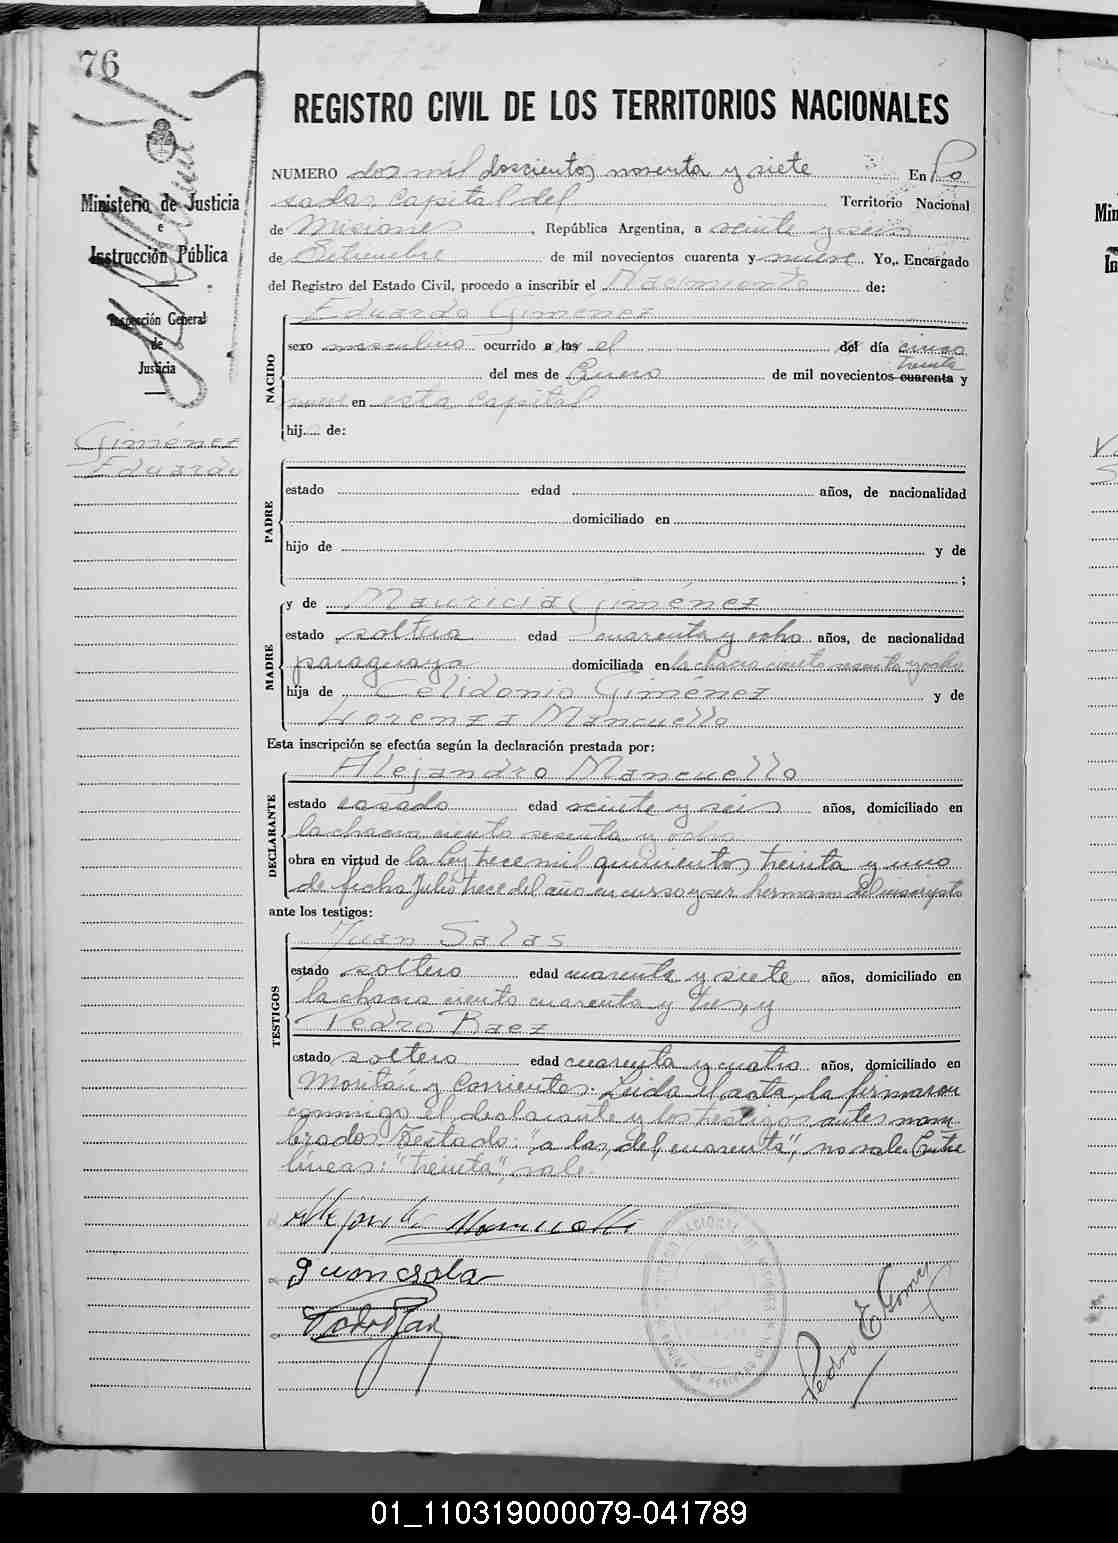 76
REGISTRO CIVIL DE LOS TERRITORIOS NACIONALES
Ministerio de Justicia
e
Instrucción Pública
Inspección General
de
Justicia
Giménez
Eduardo
NUMERO dos mil doscientos noventa y siete En Po
sadas, Capital del Territorio Nacional
de Misiones, República Argentina, a veinte y seis
de Setiembre de mil novecientos cuarenta y nueve Yo, Encargado
del Registro del Estado Civil, procedo a inscribir el Nacimiento de:
NACIDO
Eduardo Giménez
sexo masculino ocurrido a las el del día cinco
treinta
del mes de Enero de mil novecientos cuarenta y
nueve en esta capital
hij de:
PADRE
estado edad años, de nacionalidad
domiciliado en
hijo de y de
;
MADRE
y de Mauricia Giménez
estado soltera edad cuarenta y ocho años, de nacionalidad
paraguaya domiciliada en la chacra ciento sesenta y ocho
hija de Celidonio Giménez y de
Lorenza Mancuello
Esta inscripción se efectúa según la declaración prestada por:
DECLARANTE
Alejandro Mancuello
estado casado edad veinte y seis años, domiciliado en
la chacra ciento sesenta y ocho
obra en virtud de la ley trece mil quinientos treinta y uno
de fecha Julio trece del año en curso y ser hermano del inscripto
ante los testigos:
TESTIGOS
Juan Salas
estado soltero edad cuarenta y siete años, domiciliado en
la chacra ciento cuarenta y tres, y
Pedro Baez
estado soltero edad cuarenta y cuatro años, domiciliado en
y Corrientes. Leida el acta, la firmaron
conmigo el declarante y los testigos antes nom
brados. Testado: "a las, del, cuarenta", no vale. Entre
líneas: "treinta", vale.
Pedro E Gomez
01_110319000079-041789